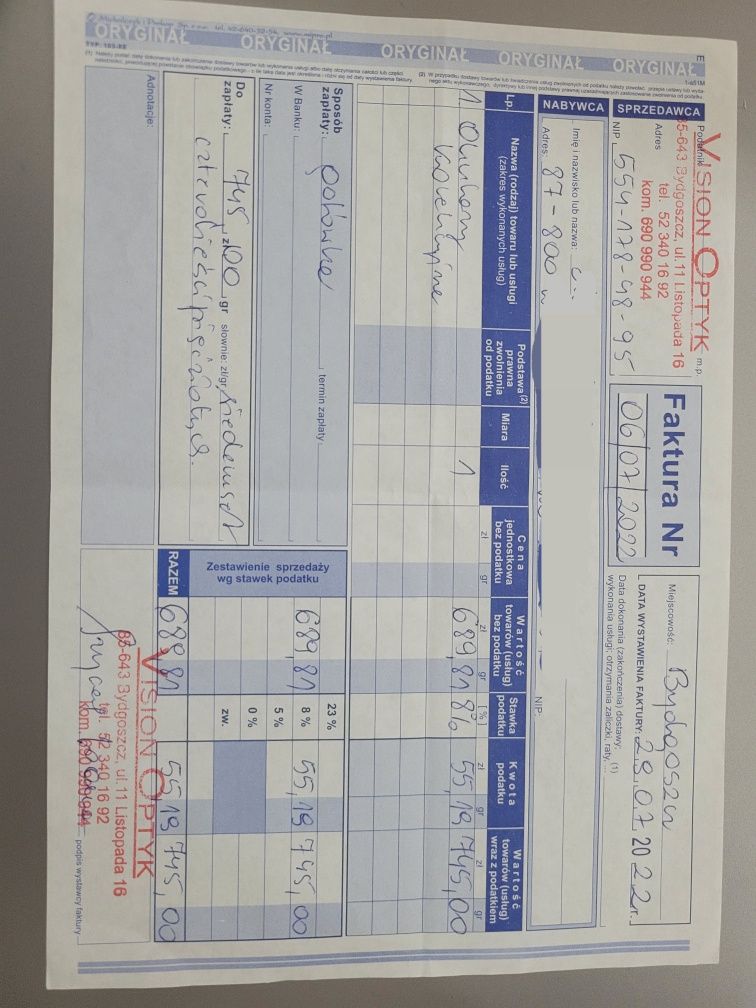 © Michalczyk i Prokop Sp. z o.o. tel. 42-640-32-54 www.mipro.pl
TYP: 103-8E
ORYGINAŁ ORYGINAŁ ORYGINAŁ ORYGINAŁ ORYGINAŁ
E
SPRZEDAWCA
Podatnik
VISION OPTYK
m.p.
85-643 Bydgoszcz, ul. 11 Listopada 16
Adres
tel. 52 340 16 92
kom. 690 990 944
NIP 554-178-48-95
Faktura Nr
06/07/2022
Miejscowość: Bydgoszcz
DATA WYSTAWIENIA FAKTURY: 28.07 2022 r.
Data dokonania (zakończenia) dostawy: (1)
wykonania usługi; otrzymania zaliczki, raty, ...
NABYWCA
Imię i nazwisko lub nazwa:
Adres: 87-800
NIP
Lp.
Nazwa (rodzaj) towaru lub usługi
(zakres wykonanych usług)
Podstawa (2)
prawna
zwolnienia
od podatku
Miara
Ilość
Cena
jednostkowa
bez podatku
zł gr
Wartość
towarów (usług)
bez podatku
zł gr
Stawka
podatku
[%]
Kwota
podatku
zł gr
Wartość
towarów (usług)
wraz z podatkiem
zł gr
1 Okulary 1 689,81 8% 55,19 745,00
korekcyjne
Sposób
zapłaty: gotówka
termin zapłaty
W Banku:
Nr konta:
Zestawienie sprzedaży
wg stawek podatku
23 %
689,81 8 % 55,19 745,00
5 %
0 %
zw.
RAZEM 689,81 55,19 745,00
Do
zapłaty: 745 zł 00 gr słownie: zł/gr siedemset
czterdzieści pięć złotych
Adnotacje:
VISION OPTYK
85-643 Bydgoszcz, ul. 11 Listopada 16
tel. 52 340 16 92
kom. 690 990 944
podpis wystawcy faktury